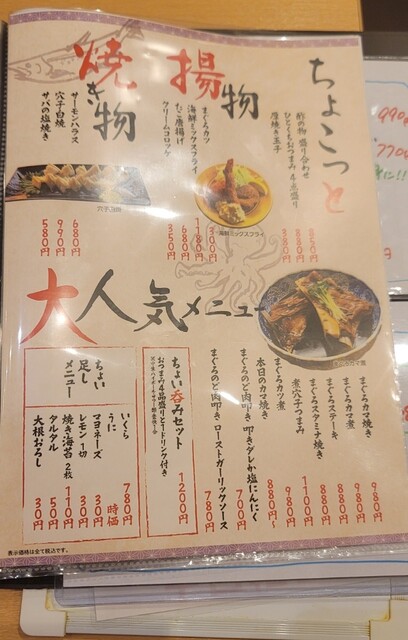 ちょこっと
酢の物 盛り合わせ 850円
ひとくちおつまみ4点盛り 880円
厚焼き玉子 380円
揚物
まぐろカツ
海鮮ミックスフライ 1180円
たこ唐揚げ 680円
クリームコロッケ 350円
海鮮ミックスフライ
焼き物
サーモンハラス 680円
穴子白焼 990円
サバの塩焼き 580円
穴子白焼
大人気メニュー
まぐろカマ焼 980円
まぐろカマ煮 980円
まぐろステーキ 880円
まぐろスタミナ焼き 880円
煮穴子つまみ 1100円
まぐろカツ煮 980円
本日のカマ焼き 880円~
まぐろのど肉叩き 叩きダレか塩にんにく 700円
まぐろのど肉叩き ローストガーリックソース 780円
ちょい呑みセット
おつまみ4品盛りとドリンク付き
1200円
ちょい足しメニュー
いくら 780円
うに 時価
マヨネーズ 30円
レモン一切 30円
焼き海苔2枚 110円
タルタル 50円
大根おろし 30円
表示価格は全て税込です。
990円
770円